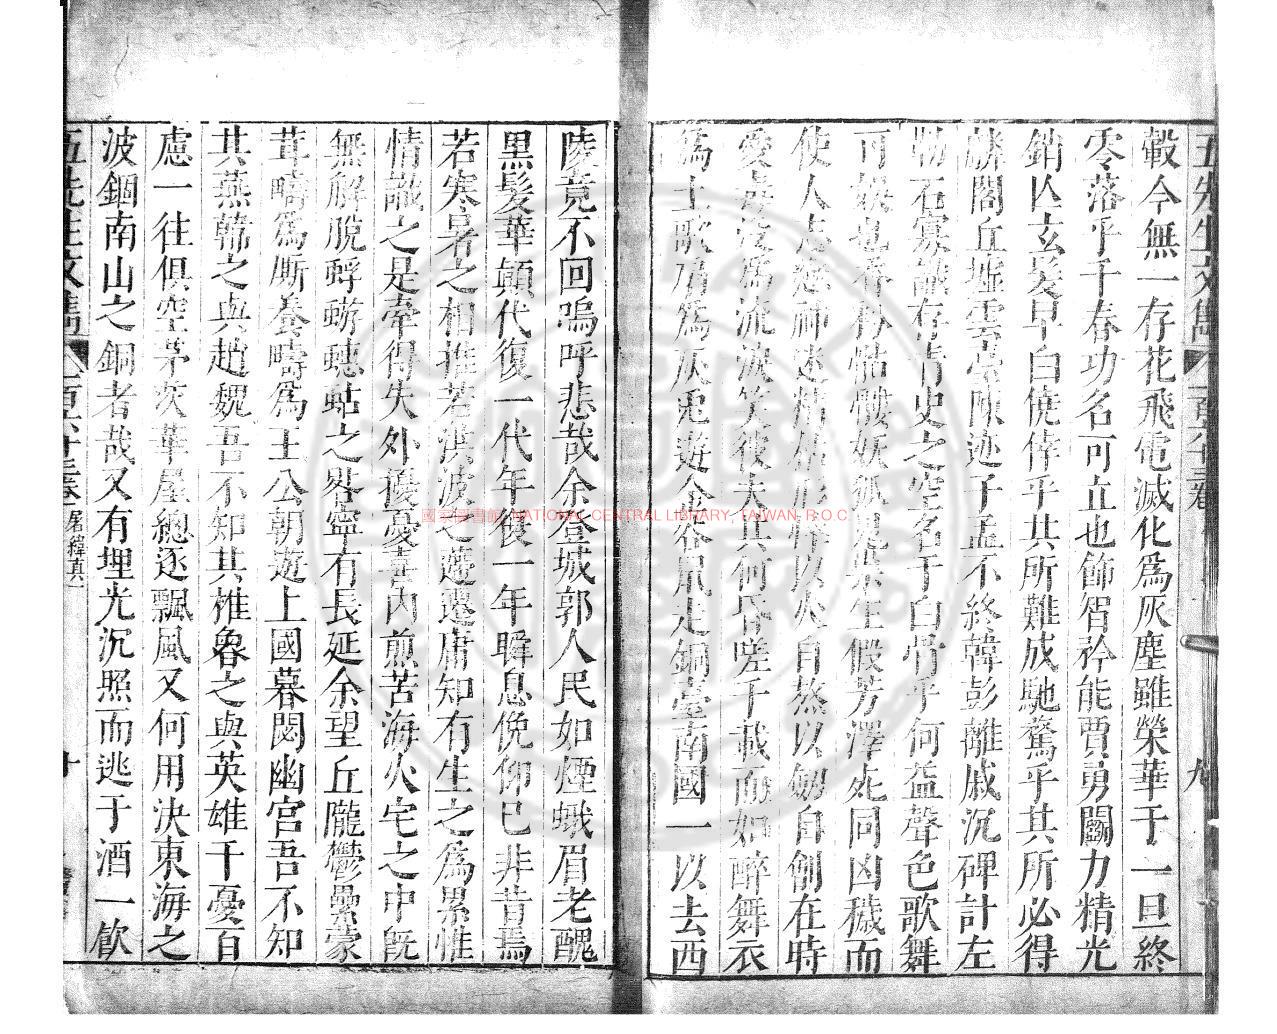 五先生文雋
九
轂今無一存花飛電滅化為灰塵雖榮華于一旦終
零落乎千春功名可立也飾智矜能賈勇鬭力精光
銷亾玄髮早白僥倖乎其所難成馳騖乎其所必得
麟閣丘墟雲臺陳迹子孟不終韓彭離戚沉碑計左
勒石寡識存青史之空名于白骨乎何益聲色歌舞
可娛也香粉骷髏妖狐是崇生假芳澤死同凶穢而
使人志惑神迷精枯形悴以火自煞以劒自創在時
愛畏沒為流波笑彼夫其何昏嗟千載而如醉舞衣
為土歌扇為灰兎遊金谷鼠走銅臺南國一以去西
陵竟不回嗚呼悲哉余登城郭人民如煙蛾眉老醜
黑髮華顛代復一代年復一年瞬息俛仰已非昔焉
若寒暑之相推若洪波之蕩遷庸知有生之為累惟
情識之是牽得失外擾憂喜內煎苦海火宅之中旣
無解脫蜉蝣蟪蛄之界寧有長延余望丘隴鬱纍蒙
茸疇為厮養疇為王公朝遊上國暮閟幽宮吾不知
其燕韓之與趙魏吾不知其椎魯之與英雄千憂百
慮一往俱空茅茨華屋總逐飄風又何用決東海之
波錮南山之銅者哉又有埋光沉照而逃于酒一飲
五先生文雋
屠緯真一
十
國家圖書館 NATIONAL CENTRAL LIBRARY, TAIWAN, R.O.C